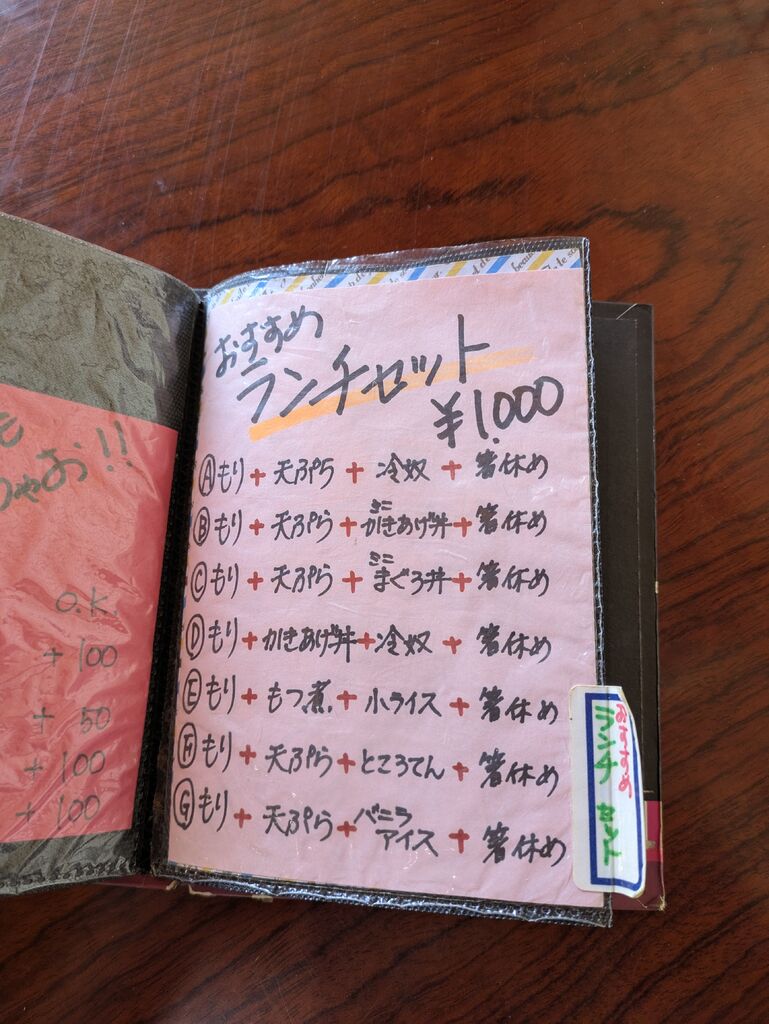 お!!
O.K.
+ 100
+ 50
+ 100
+ 100
おすすめ
ランチセット
¥1,000
Ⓐもり+天ぷら+冷奴+箸休め
Ⓑもり+天ぷら+ミニかきあげ丼+箸休め
Ⓒもり+天ぷら+ミニまぐろ丼+箸休め
Ⓓもり+かきあげ丼+冷奴+箸休め
Ⓔもり+もつ煮+小ライス+箸休め
Ⓕもり+天ぷら+ところてん+箸休め
Ⓖもり+天ぷら+バニラアイス+箸休め
おすすめ
ランチ セット